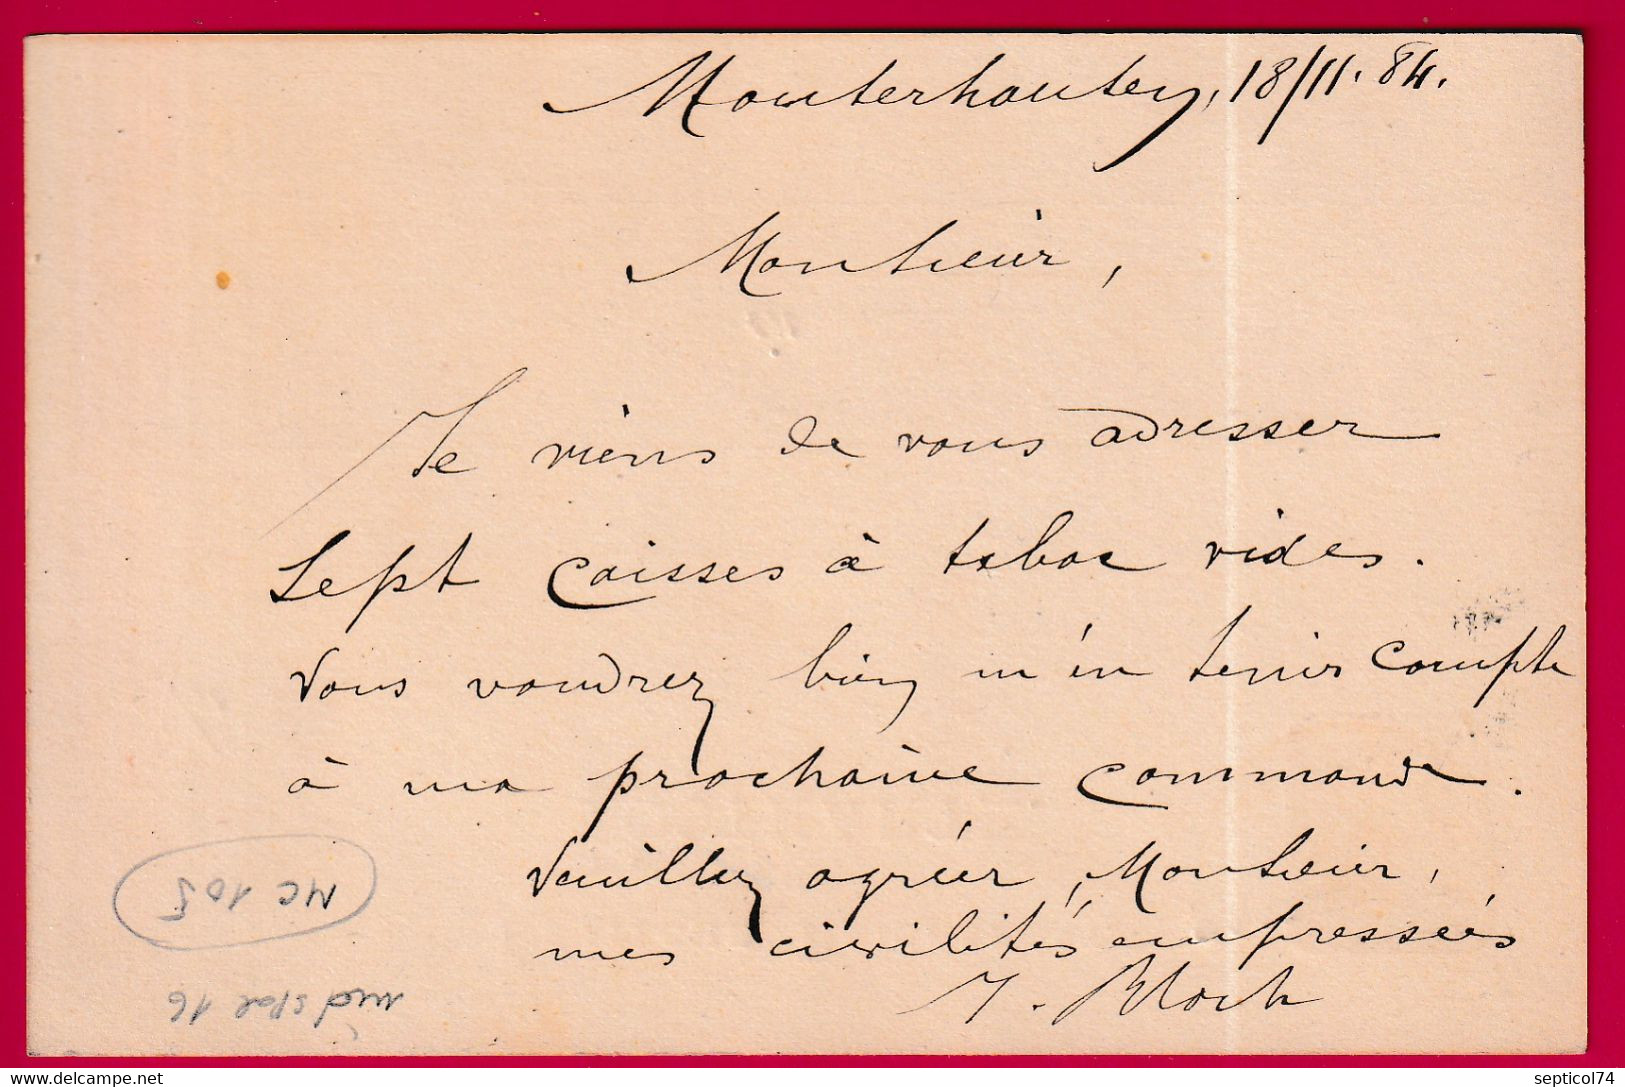 Mouterhausen, 18/11. 84.
Monsieur,
Je viens de vous adresser
sept caisses à tabac vides.
Vous voudrez bien m'en tenir compte
à ma prochaine commande.
Veuillez agréer, Monsieur,
mes civilités empressées
J. Bloch
MC 105
16
delcampe.net
septicol74